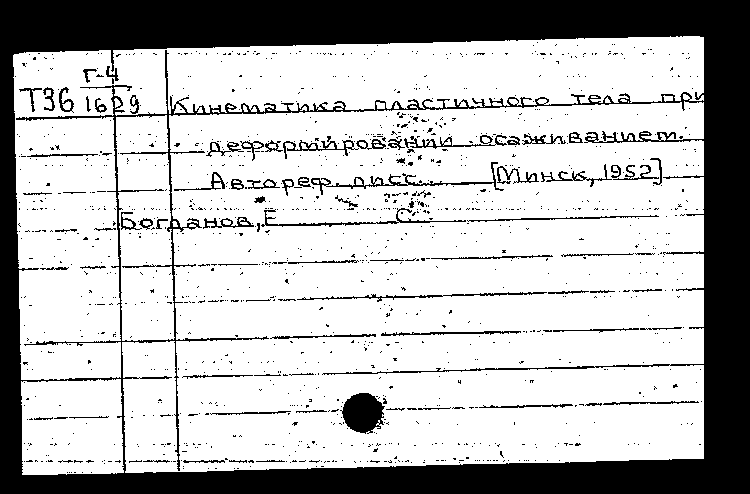 Г-4
Т36 1629 Кинематика пластичного тела при
деформировании осаживанием.
Автореф. дисс. [Минск, 1952]
Богданов, Е С.